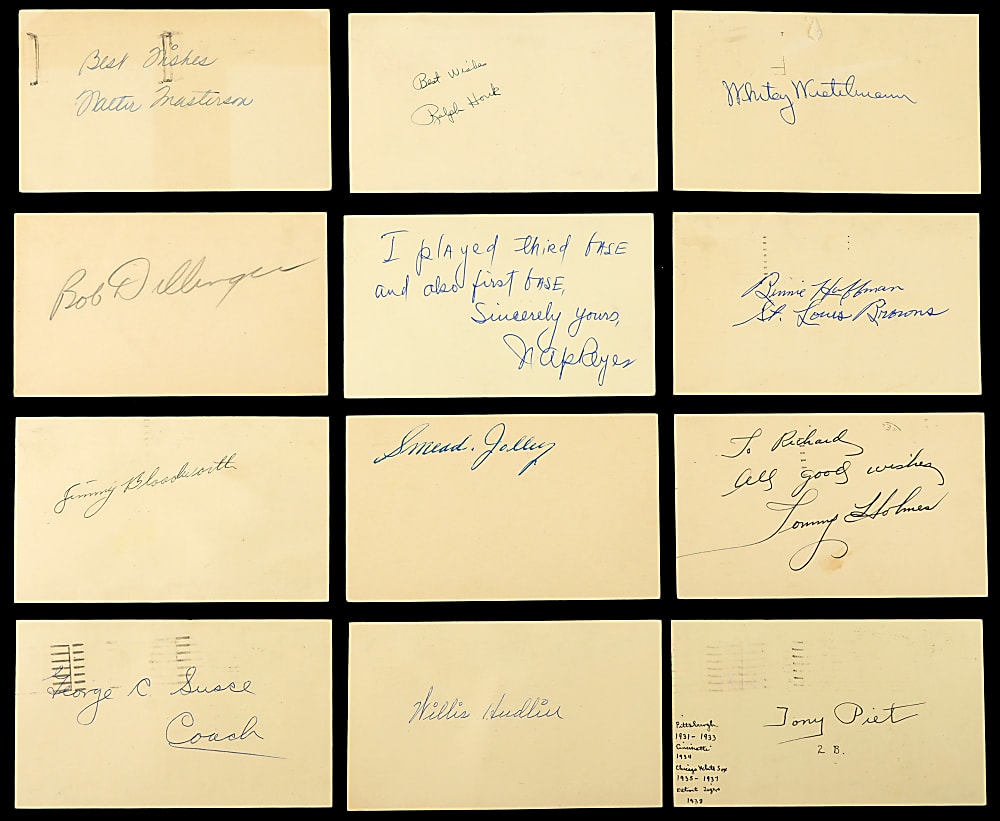 Best Wishes
Walter Masterson
Best Wishes
Ralph Houk
Whitey Wietelmann
Bob Dillinger
I played third base
and also first base,
Sincerely yours,
Nap Reyes
Bennie Huffman
St. Louis Browns
Jimmy Bloodworth
Smead Jolley
To Richard
All good wishes
Tommy Holmes
George C. Susce
Coach
Willis Hudlin
Tony Piet
2 B.
Pittsburgh
1931-1933
Cincinatti
1934
Chicago White Sox
1935-1937
Detroit Tigers
1938